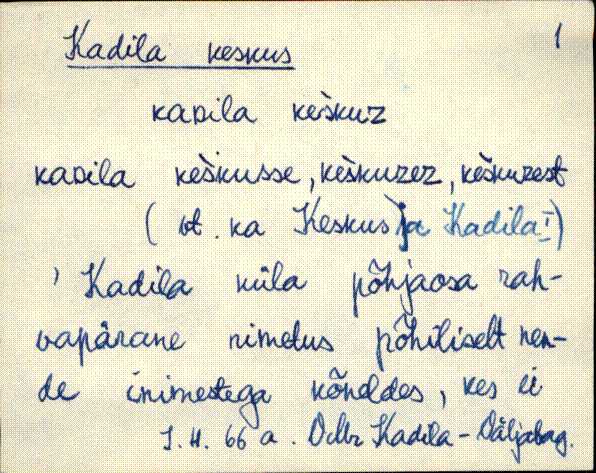 Kadila keskus 1
kaᴅila kèškuz
kaᴅila kèškusse, kèškuzez, kèškuzest
(vt. ka Keskus) ja Kadila I)
' Kadila küla põhjaosa rah-
vapärane nimetus põhiliselt nen-
de inimestega kõneldes, kes ei
J. H. 66 a. VMr Kadila -